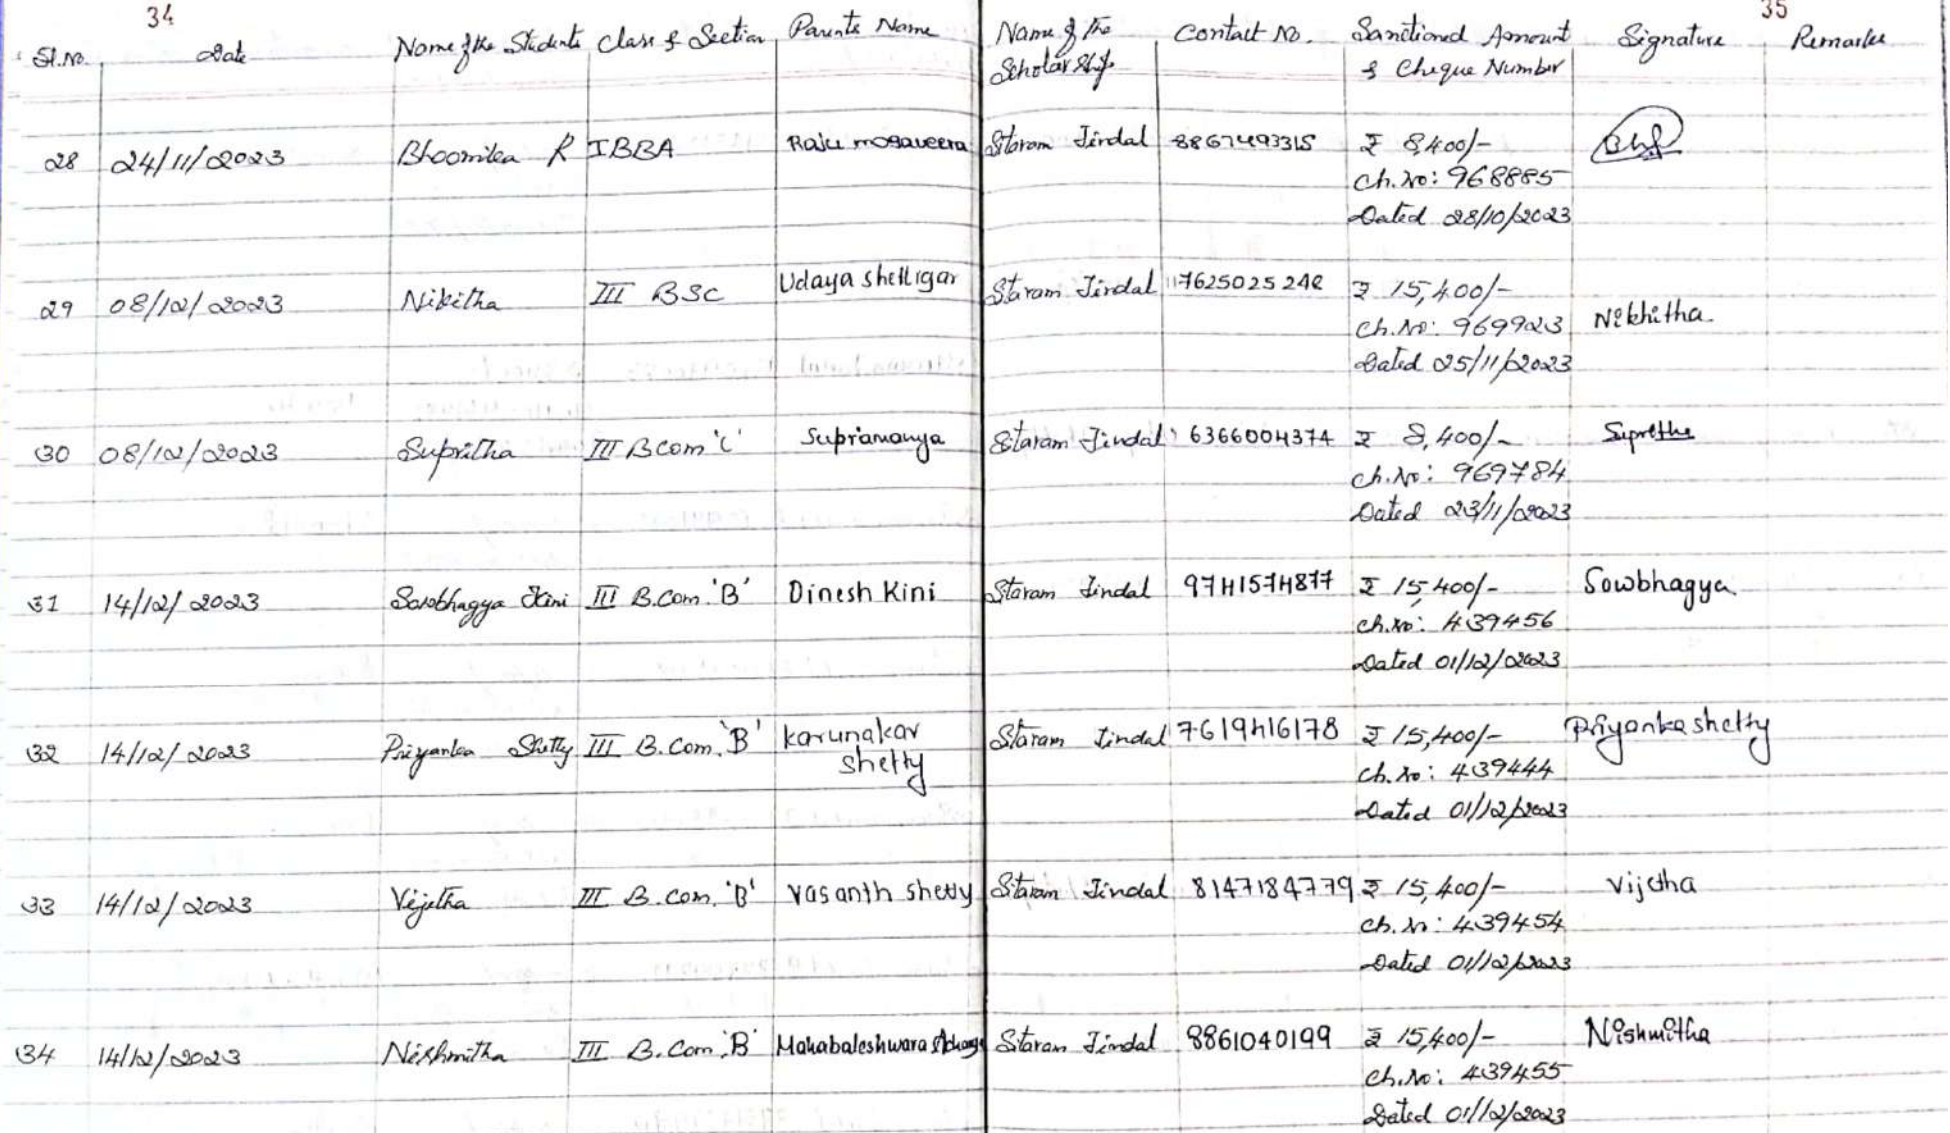 34
35
Sl.No. Date Name of the Students Class & Section Parents Name Name of the Scholarship Contact No. Sanctioned Amount & Cheque Number Signature Remarks
28 24/11/2023 Bhoomika R I BBA Raju mogaveera Sitaram Jindal 8867493315 ₹ 8,400/-
Ch.No: 968885
Dated 28/10/2023
29 08/12/2023 Nikitha III BSC Udaya shelligar Sitaram Jindal 7625025242 ₹ 15,400/-
Ch.No: 969923 Nikhitha
Dated 25/11/2023
30 08/12/2023 Supritha III BCom 'C' Supramanya Sitaram Jindal 6366004374 ₹ 8,400/- Supritha
Ch.No: 969784
Dated 23/11/2023
31 14/12/2023 Sowbhagya Kini III B.Com. 'B' Dinesh Kini Sitaram Jindal 9741574877 ₹ 15,400/- Sowbhagya
Ch.No: 439456
Dated 01/12/2023
32 14/12/2023 Priyanka Shetty III B.Com. 'B' karunakar shetty Sitaram Jindal 7619416178 ₹ 15,400/- Priyanka shetty
Ch.No: 439444
Dated 01/12/2023
33 14/12/2023 Vijetha III B.Com. 'B' vasanth shetty Sitaram Jindal 8147184779 ₹ 15,400/- Vijetha
Ch.No: 439454
Dated 01/12/2023
34 14/12/2023 Nishmitha III B.Com. 'B' Mahabaleshwara Sitaram Jindal 8861040199 ₹ 15,400/- Nishmitha
Ch.No: 439455
Dated 01/12/2023